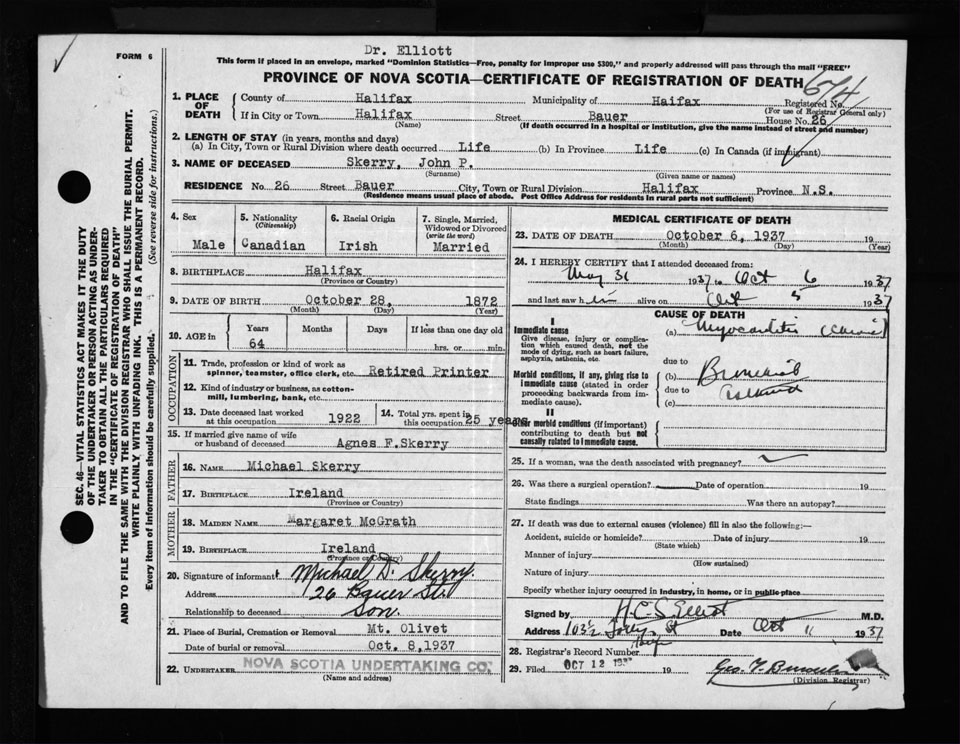 Dr. Elliott
FORM 6
This form if placed in an envelope, marked "Dominion Statistics—Free, penalty for improper use $300," and properly addressed will pass through the mail "FREE"
PROVINCE OF NOVA SCOTIA—CERTIFICATE OF REGISTRATION OF DEATH
674
1. PLACE OF DEATH
County of Halifax Municipality of Haifax Registered No.
(For use of Registrar General only)
If in City or Town Halifax Street Bauer House No. 26
(Name) (If death occurred in a hospital or institution, give the name instead of street and number)
2. LENGTH OF STAY (in years, months and days)
(a) In City, Town or Rural Division where death occurred Life (b) In Province Life (c) In Canada (if immigrant)
3. NAME OF DECEASED Skerry, John P.
(Surname) (Given name or names)
RESIDENCE No. 26 Street Bauer City, Town or Rural Division Halifax Province N.S.
(Residence means usual place of abode. Post Office Address for residents in rural parts not sufficient)
4. Sex
Male
5. Nationality
(Citizenship)
Canadian
6. Racial Origin
Irish
7. Single, Married, Widowed or Divorced
(write the word)
Married
8. BIRTHPLACE Halifax
(Province or Country)
9. DATE OF BIRTH October 28, 1872
(Month) (Day) (Year)
10. AGE in
Years Months Days If less than one day old
64 hrs. or min.
OCCUPATION
11. Trade, profession or kind of work as spinner, teamster, office clerk, etc. Retired Printer
12. Kind of industry or business, as cotton-mill, lumbering, bank, etc.
13. Date deceased last worked at this occupation 1922
14. Total yrs. spent in this occupation 25 years
15. If married give name of wife or husband of deceased Agnes F. Skerry
FATHER
16. NAME Michael Skerry
17. BIRTHPLACE Ireland
(Province or Country)
MOTHER
18. MAIDEN NAME Margaret McGrath
19. BIRTHPLACE Ireland
(Province or Country)
20. Signature of informant Michael D. Skerry
Address 26 Bauer St.
Relationship to deceased Son.
21. Place of Burial, Cremation or Removal Mt. Olivet
Date of burial or removal Oct. 8, 1937
22. UNDERTAKER NOVA SCOTIA UNDERTAKING CO.
(Name and address)
MEDICAL CERTIFICATE OF DEATH
23. DATE OF DEATH October 6, 1937 19
(Month) (Day) (Year)
24. I HEREBY CERTIFY that I attended deceased from:
May 31 1937 to Oct 6 1937
and last saw him alive on Oct 5 1937
CAUSE OF DEATH
I
Immediate cause
Give disease, injury or complication which caused death, not the mode of dying, such as heart failure, asphyxia, asthenia, etc.
(a) Myocarditis
due to
Morbid conditions, if any, giving rise to immediate cause (stated in order proceeding backwards from immediate cause).
(b) Bronchial
due to
(c)
II
Other morbid conditions (if important) contributing to death but not causally related to immediate cause.
25. If a woman, was the death associated with pregnancy?
26. Was there a surgical operation? Date of operation 19
State findings Was there an autopsy?
27. If death was due to external causes (violence) fill in also the following:—
Accident, suicide or homicide? Date of injury 19
(State which)
Manner of injury
(How sustained)
Nature of injury
Specify whether injury occurred in industry, in home, or in public place
Signed by H.C.S. Elliot M.D.
Address 103½ St Date Oct 11 1937
28. Registrar's Record Number
29. Filed OCT 12 19 Geo. F.
(Division Registrar)
SEC. 46—VITAL STATISTICS ACT MAKES IT THE DUTY
OF THE UNDERTAKER OR PERSON ACTING AS UNDER-
TAKER TO OBTAIN ALL THE PARTICULARS REQUIRED
IN THE "CERTIFICATE OF REGISTRATION OF DEATH"
AND TO FILE THE SAME WITH THE DIVISION REGISTRAR WHO SHALL ISSUE THE BURIAL PERMIT.
WRITE PLAINLY, WITH UNFADING INK. THIS IS A PERMANENT RECORD.
Every item of information should be carefully supplied. (See reverse side for instructions.)